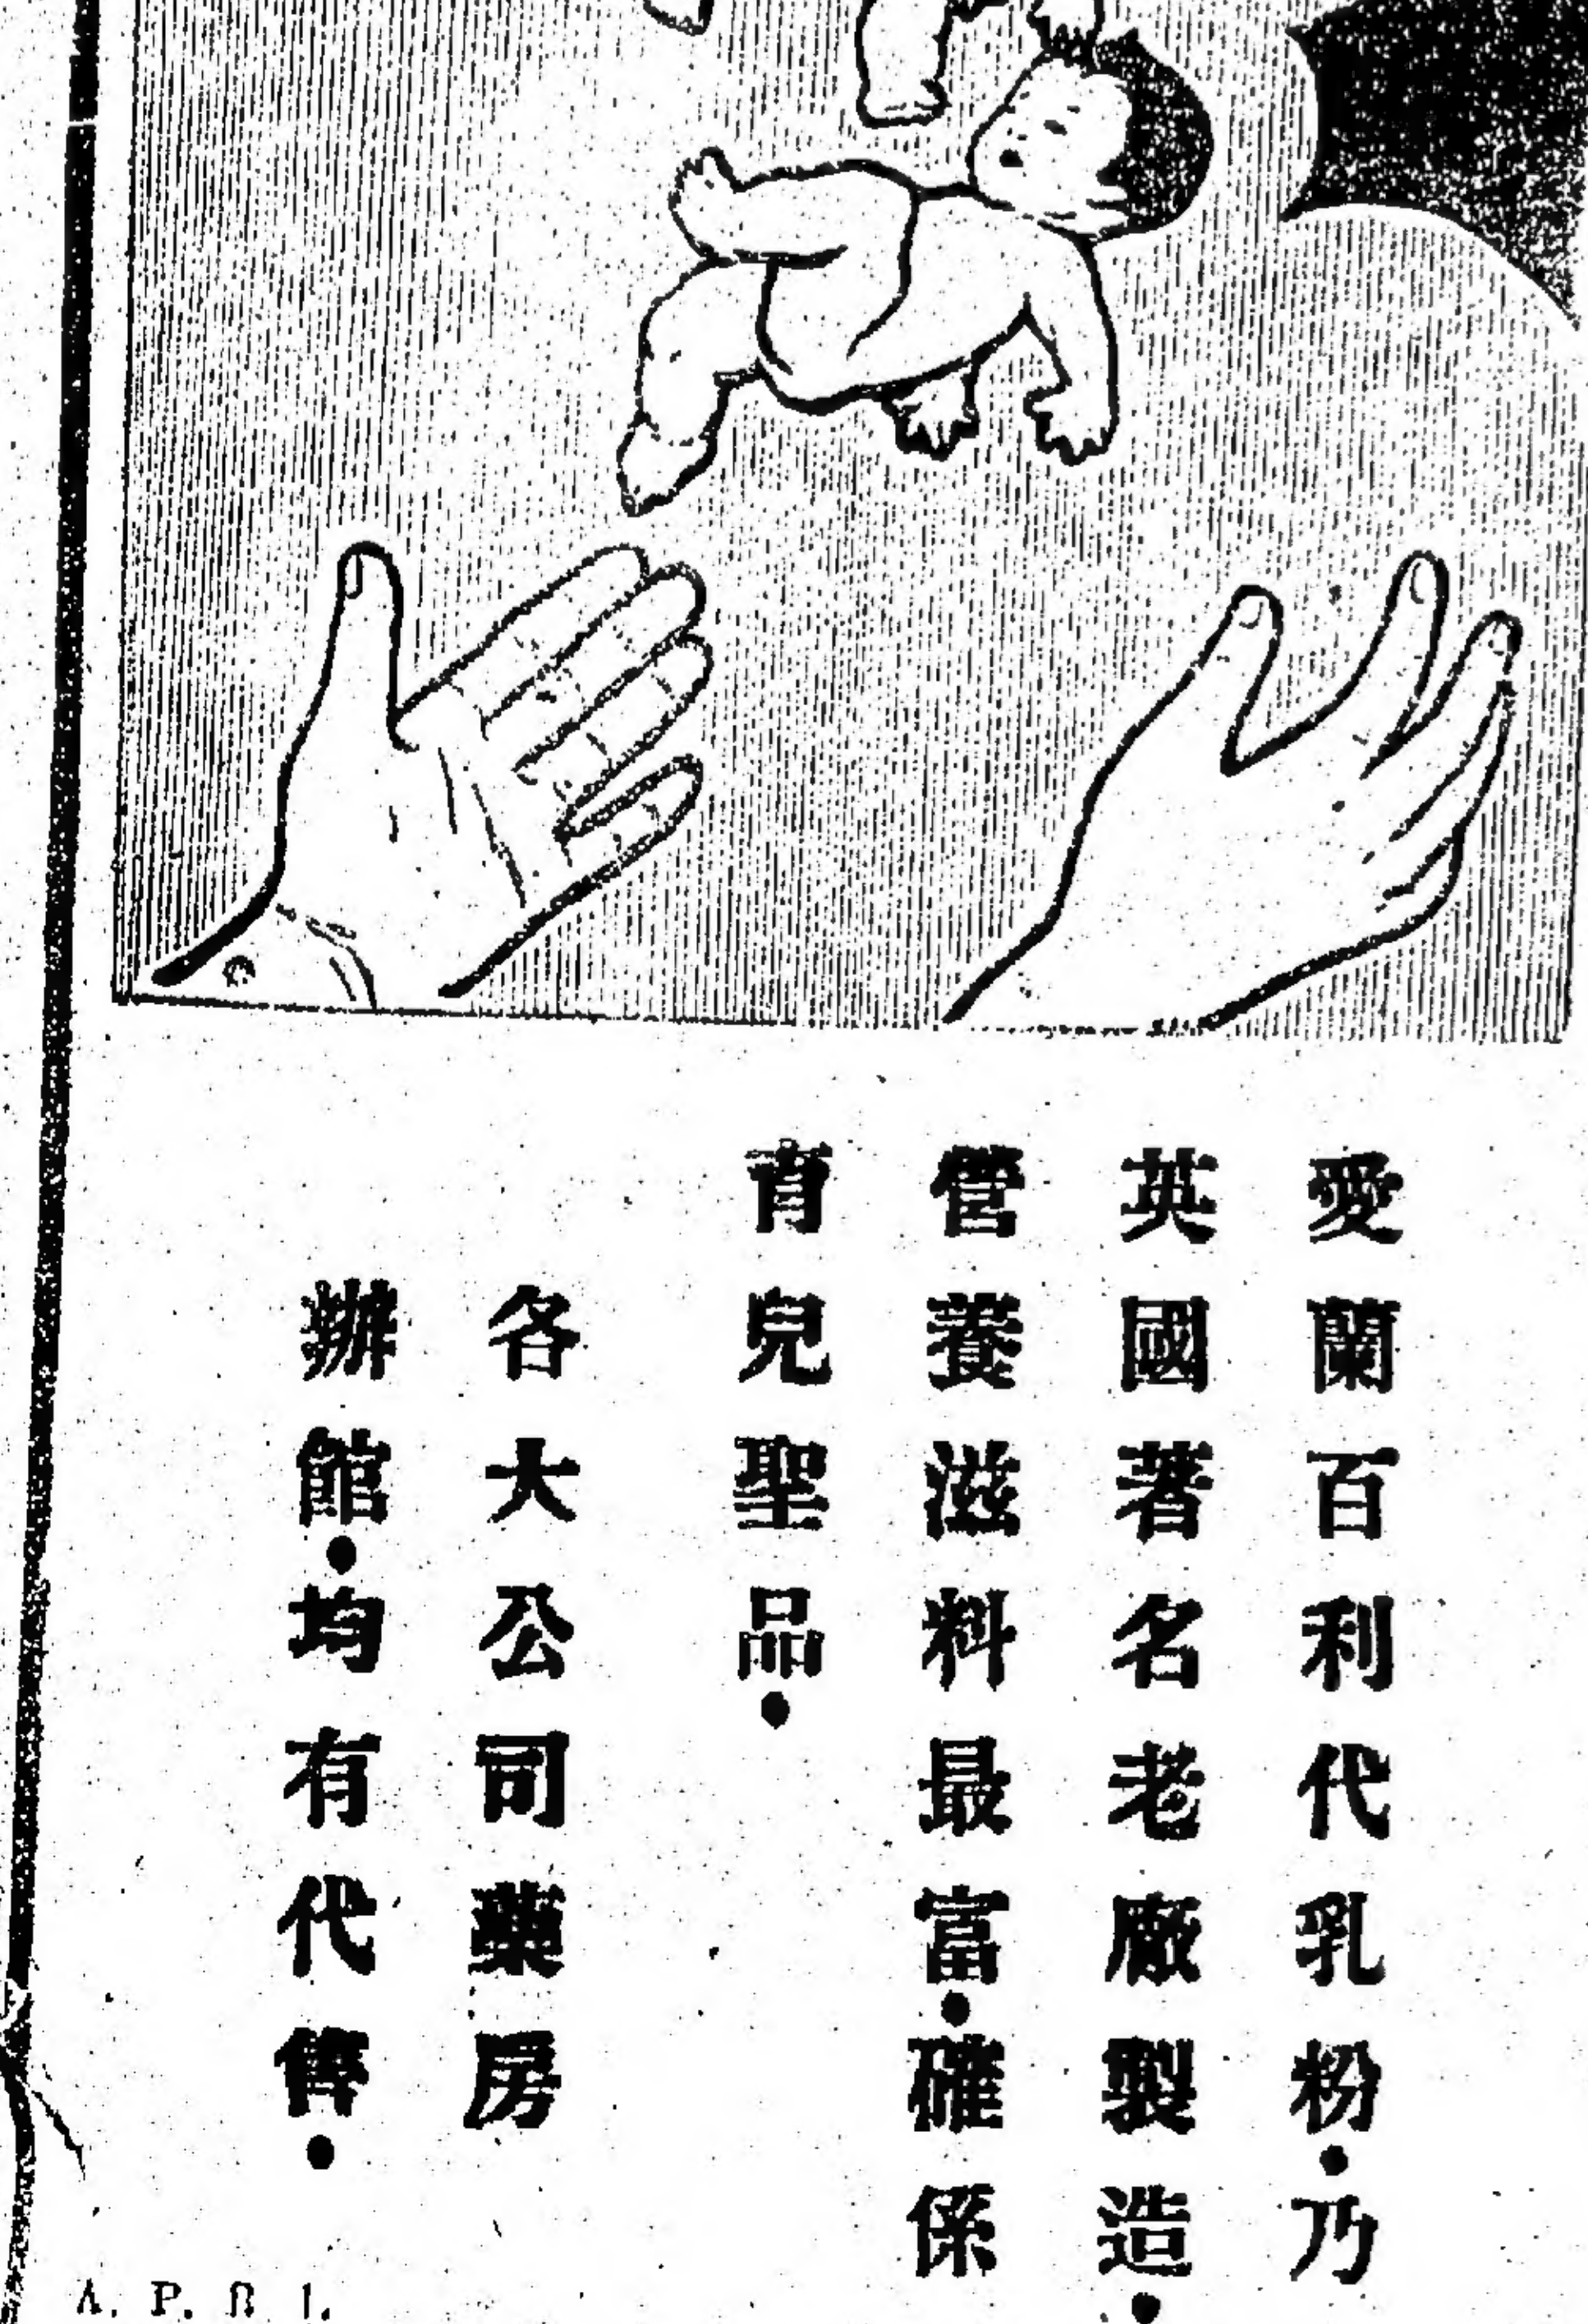 愛蘭百利代乳粉•乃
英國著名老廠製造•
營養滋料最富•確係
育兒聖品•
各大公司藥房
辦館•均有代售•
A. P. B 1.